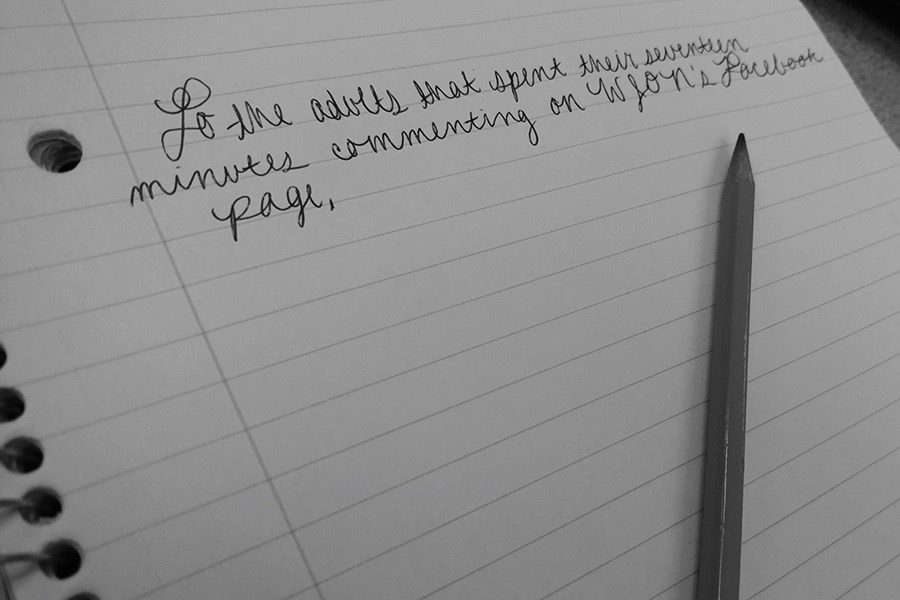 To the adults that spent their seventeen
minutes commenting on WJON's Facebook
page,